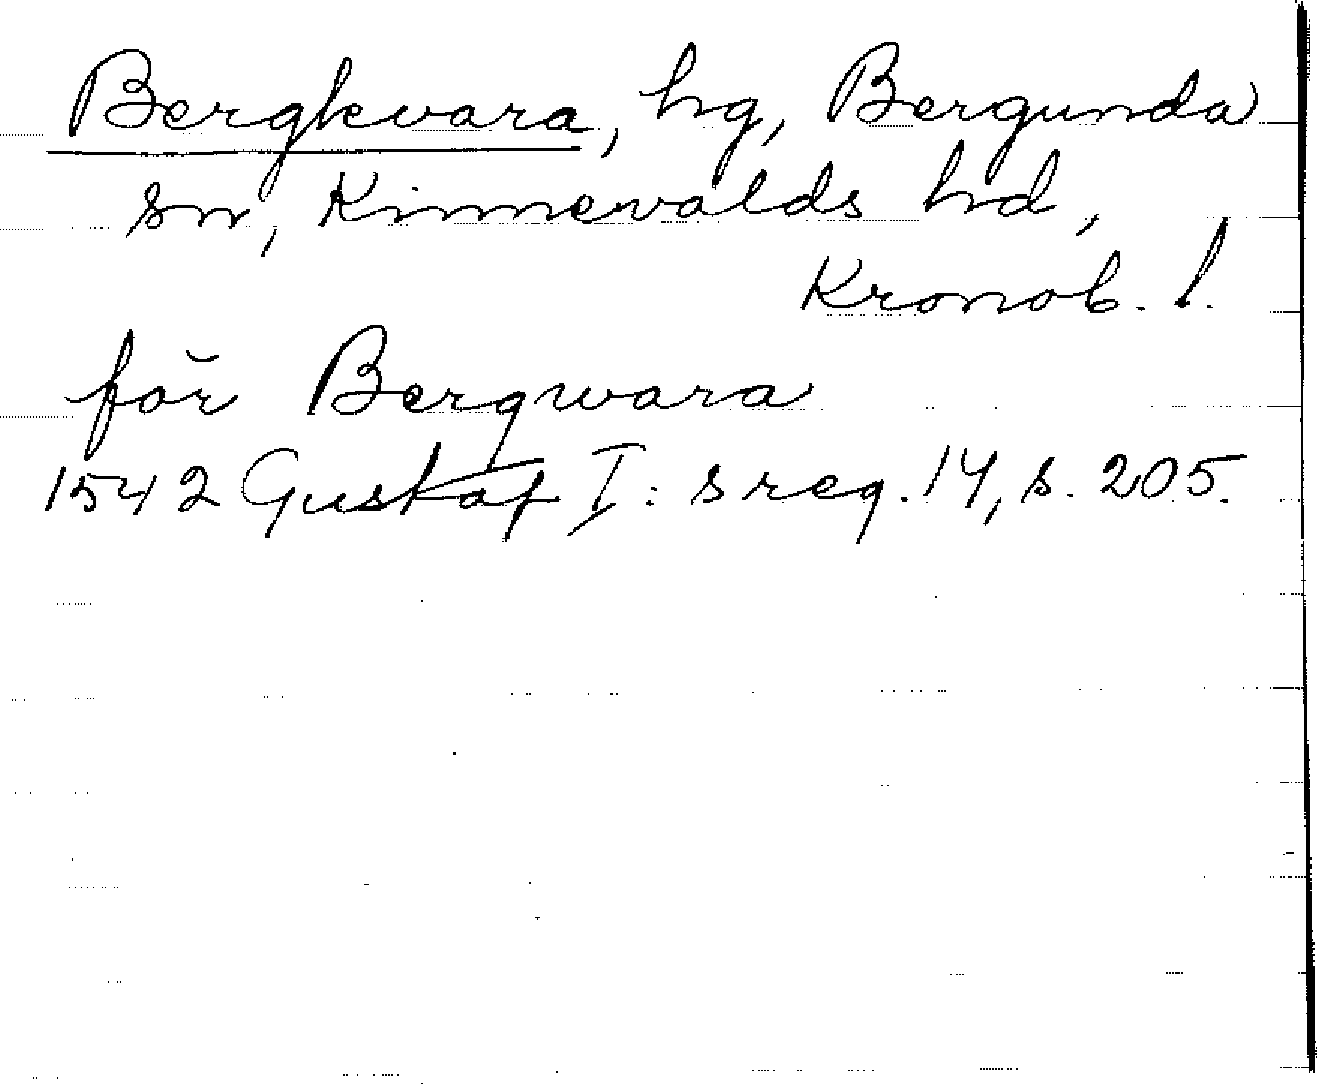 Bergkvara, hg, Bergunda
sn, Kinnevalds hd,
Kronob. l.
för Bergwara
1542 Gustaf I:s reg. 14, s. 205.